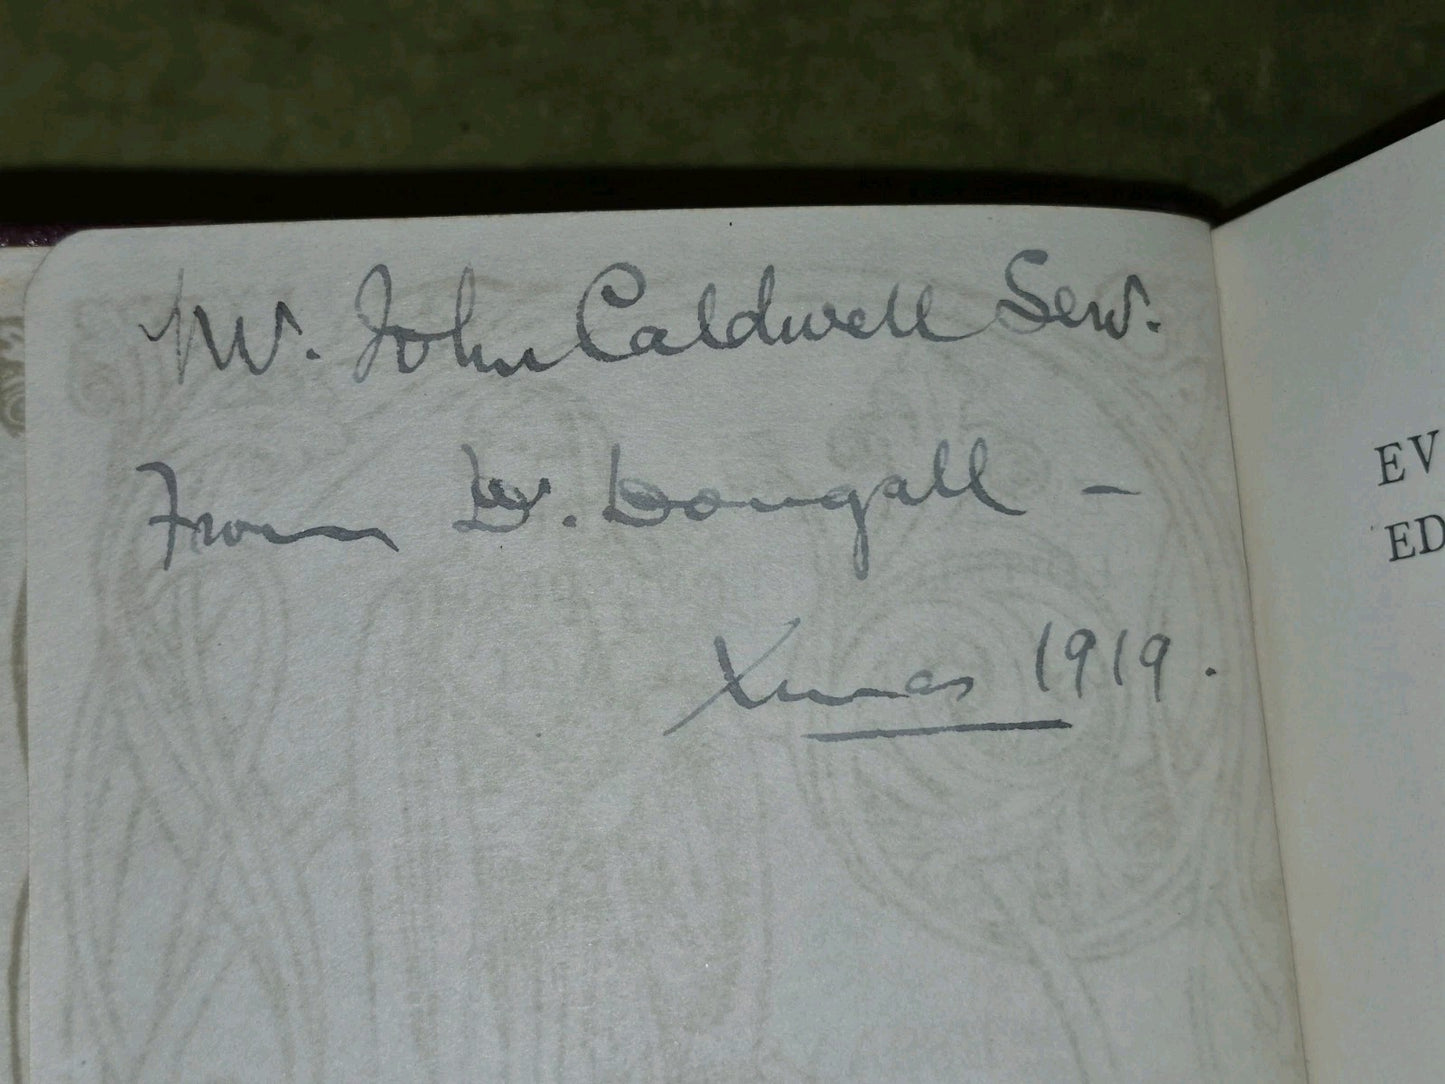 Mr. John Caldwell Senr.
From D. Dougall —
Xmas 1919.
EV
ED